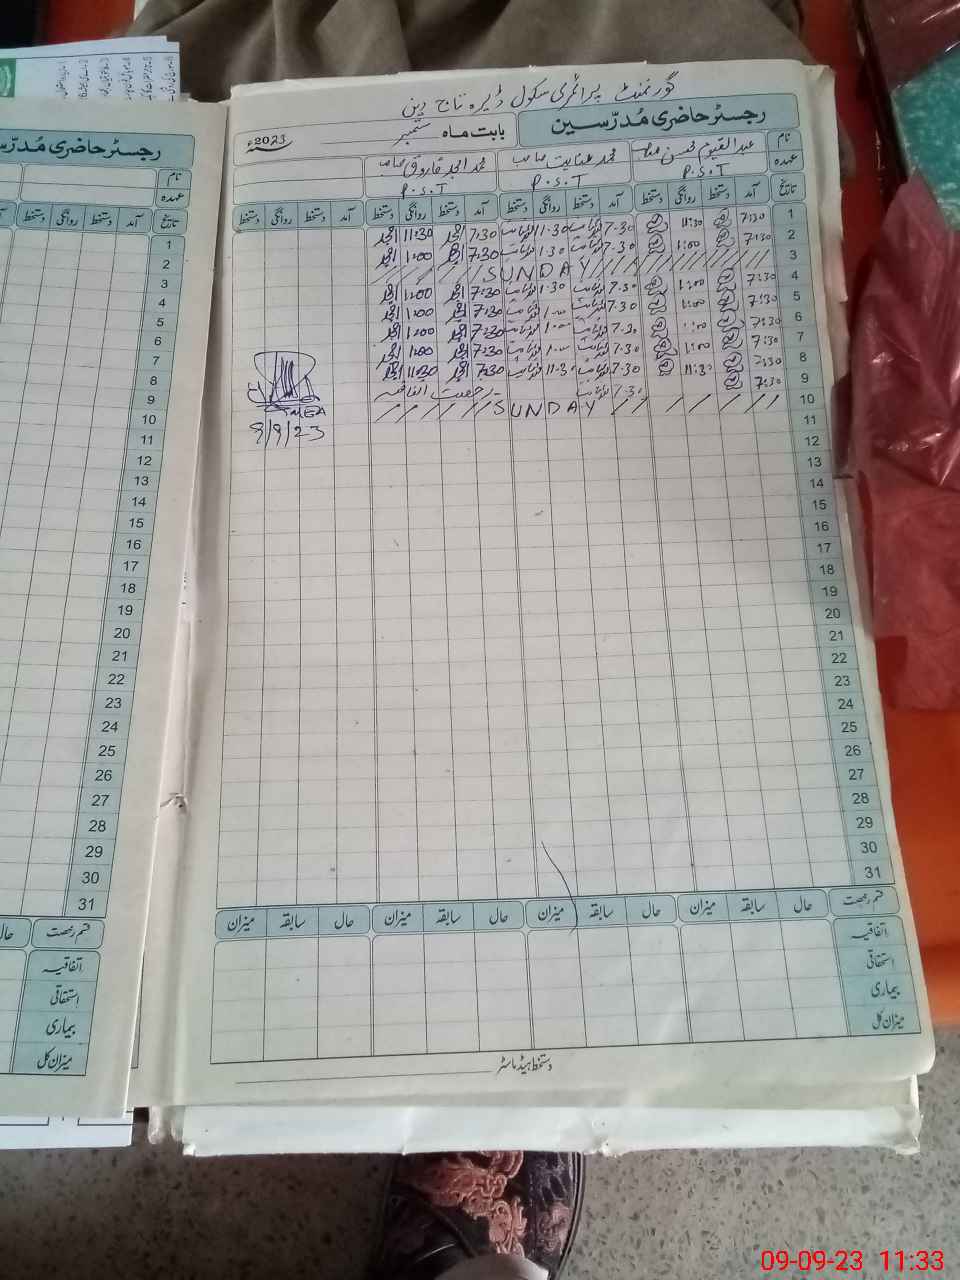 گورنمنٹ پرائمری سکول ڈیرہ تاج دین
رجسٹر حاضری مُدرّسین
بابت ماہ ستمبر 2023ء
نام عبدالقیوم محسن محمد عنایت صاحب محمد امجد فاروق صاحب
عہدہ P.S.T P.S.T P.S.T
تاریخ آمد دستخط روانگی دستخط آمد دستخط روانگی دستخط آمد دستخط روانگی دستخط آمد دستخط روانگی دستخط
1 7:30 11:30 7.30 11.30 7:30 امجد 11:30 امجد
2 7:30 1:00 7.30 1.30 7:30 امجد 1:00 امجد
3 SUNDAY
4 7:30 1:00 7.30 1.30 7:30 امجد 1:00 امجد
5 7:30 1:00 7.30 1.00 7:30 امجد 1:00 امجد
6 7:30 1:00 7.30 1.00 7:30 امجد 1:00 امجد
7 7:30 1:00 7.30 1.00 7:30 امجد 1:00 امجد
8 7:30 11:30 7.30 11.30 7:30 امجد 11:30 امجد
9 7:30 7.30 رخصت اتفاقیہ
10 SUNDAY
MEA
9/9/23
11
12
13
14
15
16
17
18
19
20
21
22
23
24
25
26
27
28
29
30
31
قسم رخصت حال سابقہ میزان حال سابقہ میزان حال سابقہ میزان حال سابقہ میزان
اتفاقیہ
استحقاقی
بیماری
میزان کل
دستخط ہیڈ ماسٹر
رجسٹر حاضری مُدرّس
نام
عہدہ
تاریخ آمد دستخط روانگی دستخط
1
2
3
4
5
6
7
8
9
10
11
12
13
14
15
16
17
18
19
20
21
22
23
24
25
26
27
28
29
30
31
قسم رخصت حال
اتفاقیہ
استحقاقی
بیماری
میزان کل
09-09-23 11:33